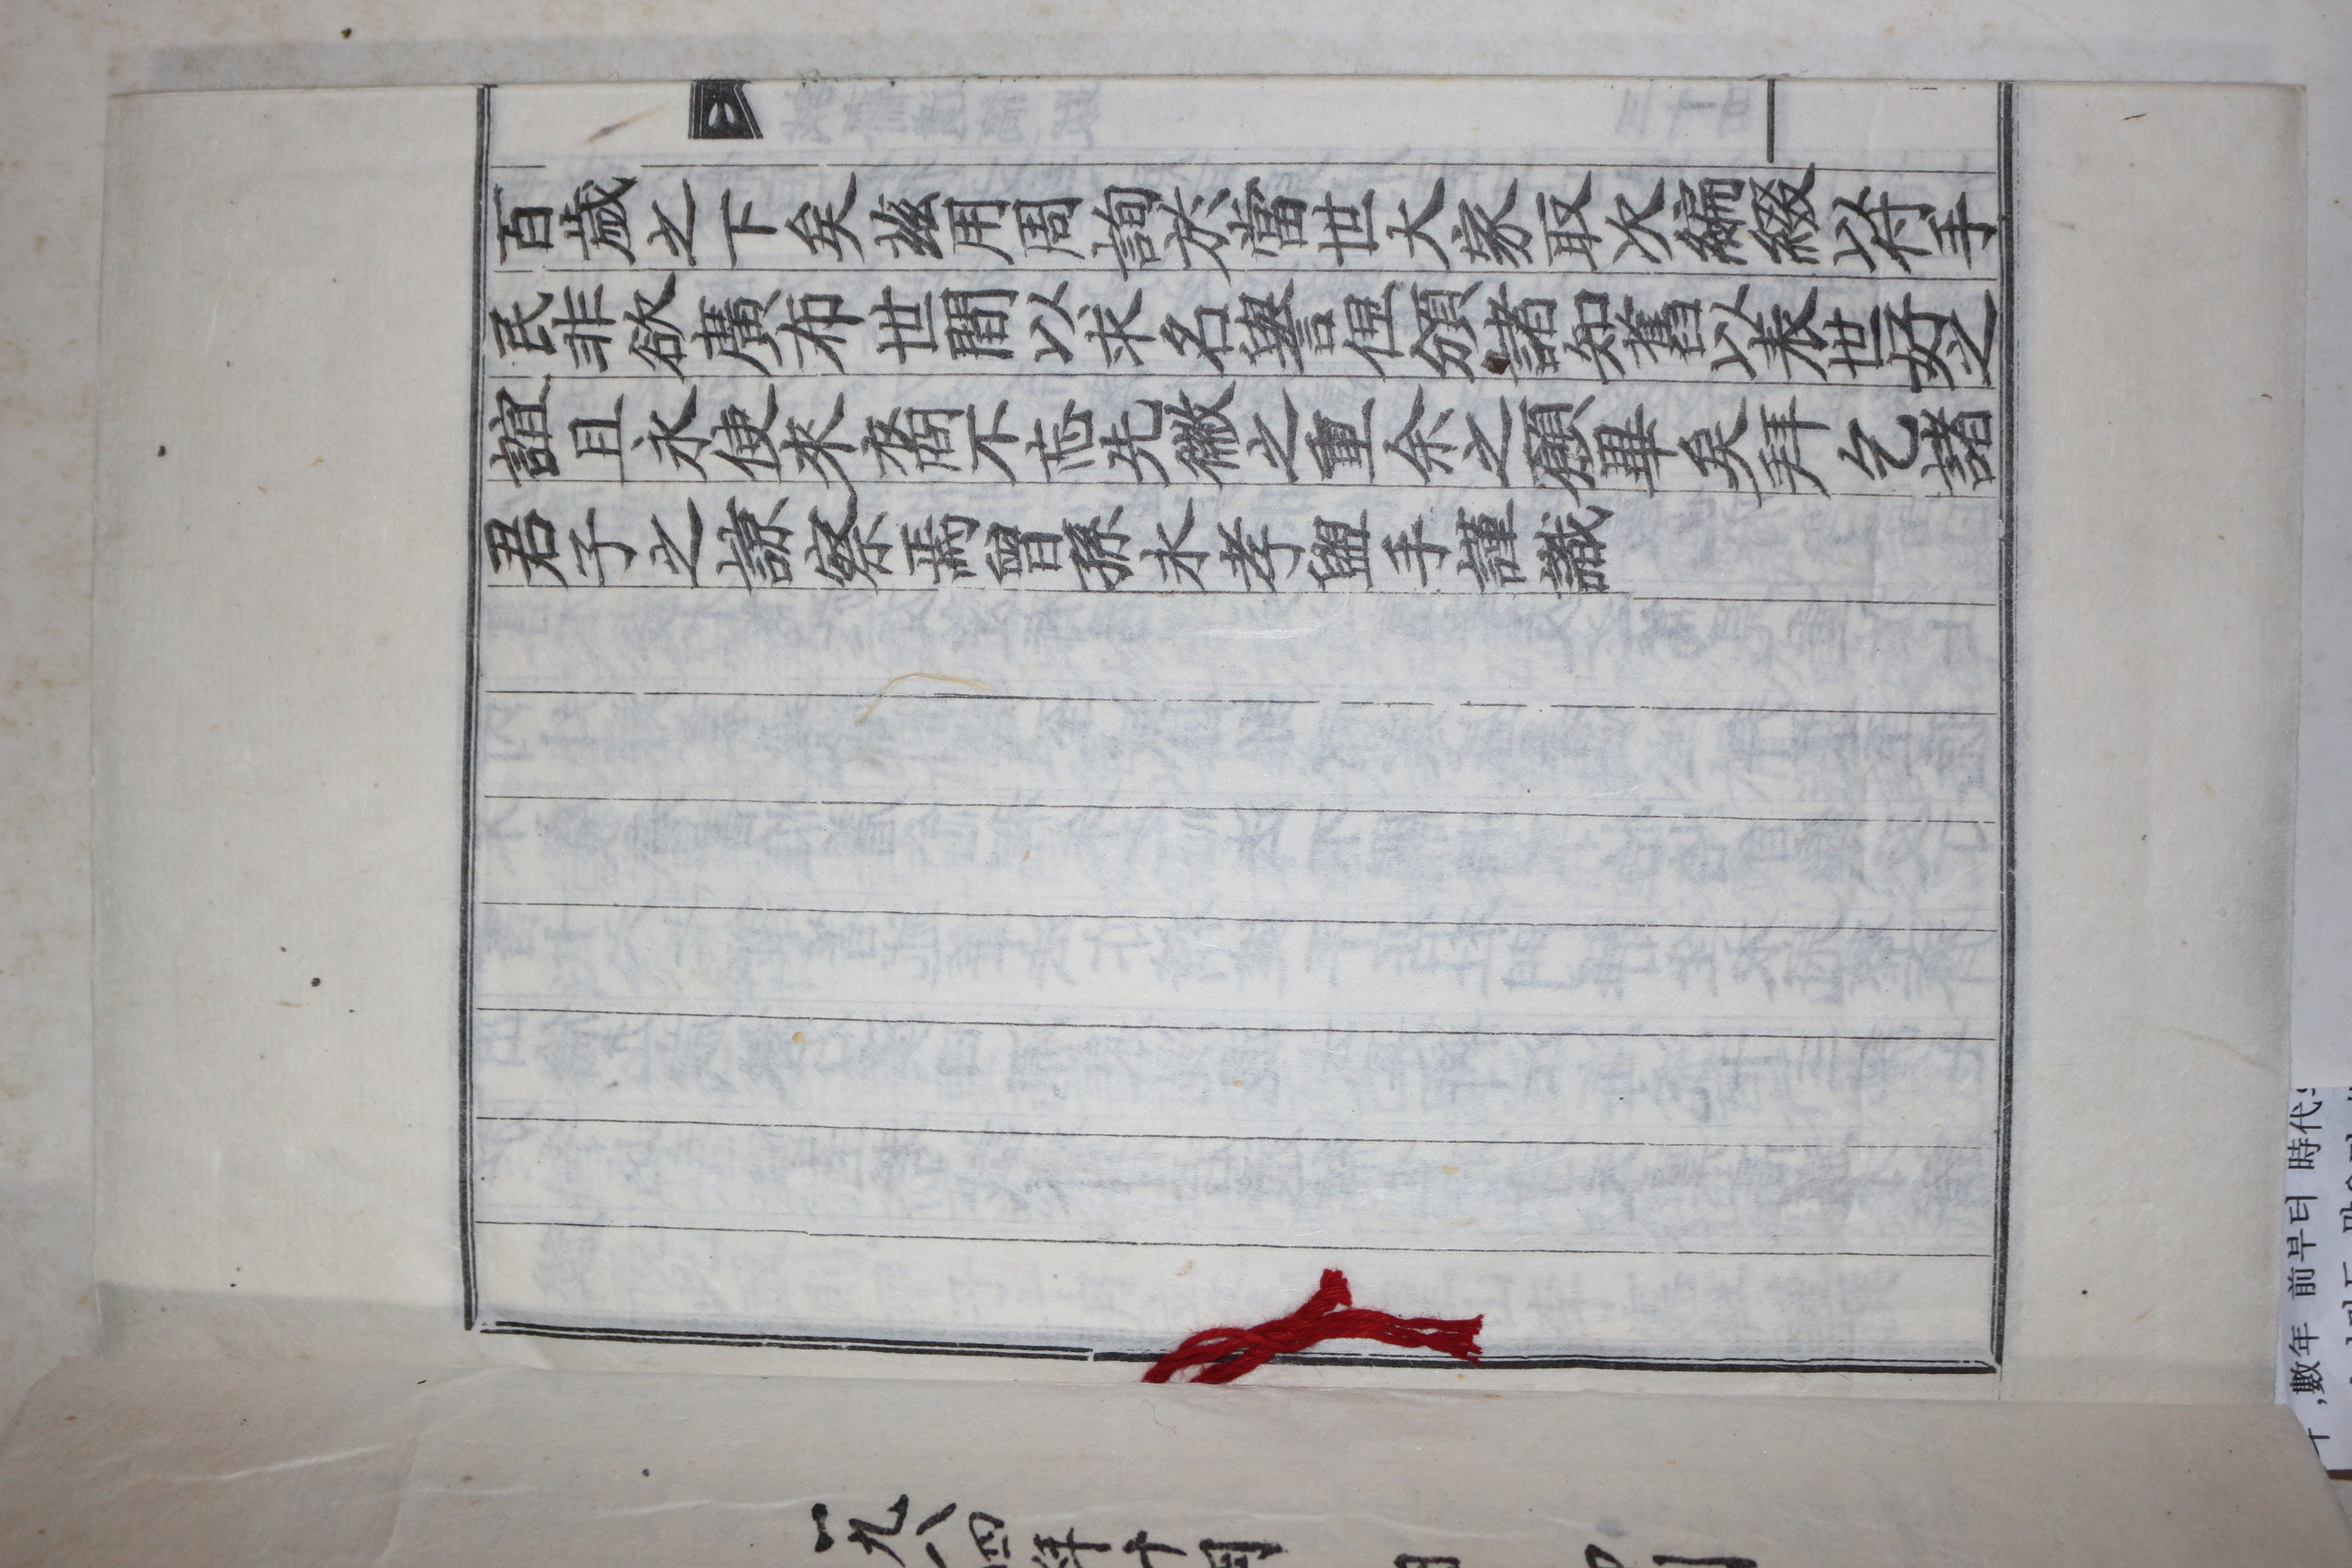 百歲之下矣玆用周詢於當世大家取次編綴以付手
民非欲廣布世間以求名譽但頒諸知舊以表世好之
誼且永使來裔不忘先徽之重余之願畢矣拜乞諸
君子之諒察焉曾孫永孝盥手謹識
一九八四年十月
,數年 前부터 時代